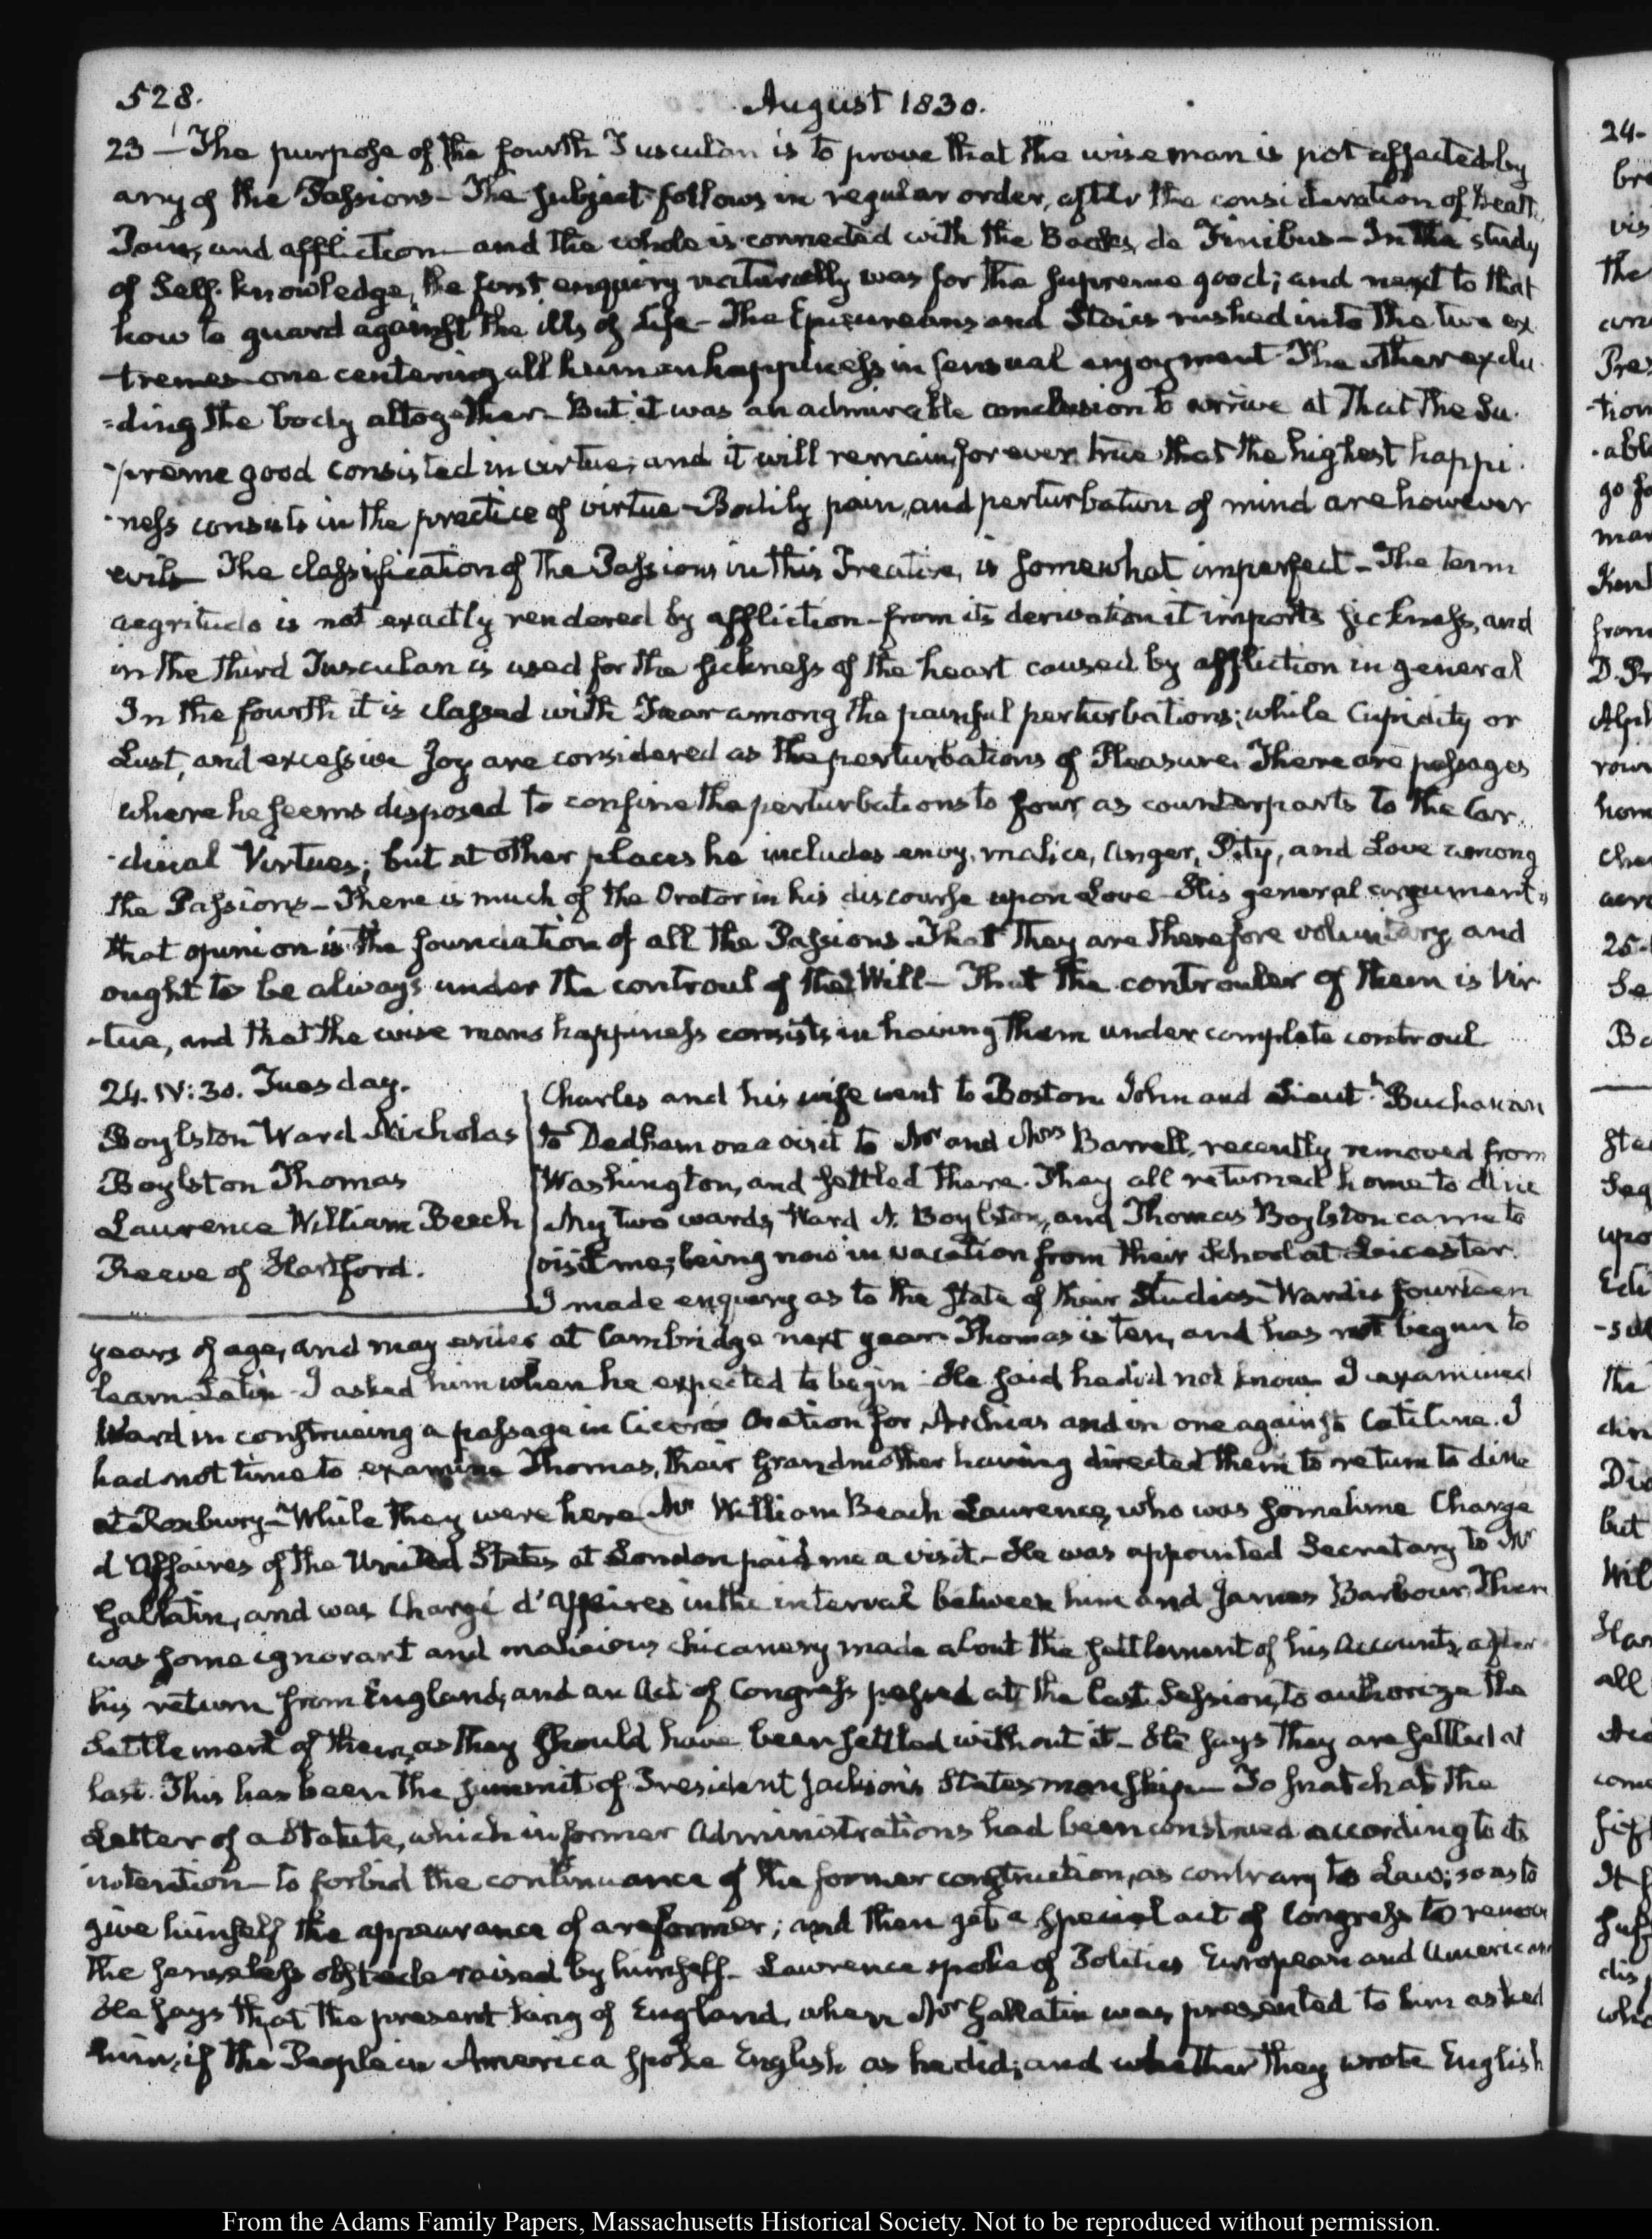 528.
August 1830.
23 — The purpose of the fourth Tusculan is to prove that the wise man is not affected by
any of the Passions — The subject follows in regular order, after the consideration of Death,
Pain, and affliction — and the whole is connected with the Books, de Finibus — In the study
of Self-knowledge, the first enquiry naturally was for the supreme good; and next to that
how to guard against the ills of Life — The Epicureans and Stoics rushed into the two ex
tremes — one centering all human happiness in sensual enjoyment The other exclu-
-ding the body altogether — But it was an admirable conclusion to arrive at That the Su-
-preme good consisted in virtue; and it will remain for ever true that the highest happi-
-ness consists in the practice of virtue — Bodily pain, and perturbation of mind are however
evils — The classification of the Passions in this Treatise, is somewhat imperfect — The term
aegritudo is not exactly rendered by affliction — from its derivation it imports sickness, and
in the third Tusculan is used for the sickness of the heart caused by affliction in general
In the fourth it is classed with Fear among the painful perturbations; while Cupidity or
Lust, and excessive Joy are considered as the perturbations of Pleasure. There are passages
where he seems disposed to confine the perturbations to four, as counterparts to the Car-
-dinal Virtues; but at other places he includes envy, malice, Anger, Pity, and Love among
the Passions — There is much of the Orator in his discourse upon Love — His general argument is
that opinion is the foundation of all the Passions — That they are therefore voluntary, and
ought to be always under the controul of the Will — That the controuler of them is Vir-
-tue, and that the wise mans happiness consists in having them under complete controul.
24. IV:30. Tuesday.
Boylston Ward Nicholas
Boylston Thomas
Laurence William Beach
Reeve of Hartford.
Charles and his wife went to Boston. John and Lieutt. Buchanan
to Dedham on a visit to Mr and Mrs Barrell, recently removed from
Washington, and settled there. They all returned home to dine
My two wards, Ward N. Boylston, and Thomas Boylston came to
visit me; being now in vacation from their School at Leicester.
I made enquiry as to the state of their Studies — Ward is fourteen
years of age, and may enter at Cambridge next year. Thomas is ten, and has not begun to
learn Latin — I asked him when he expected to begin — He said he did not know I examined
Ward in construing a passage in Cicero's Oration for Archias and in one against Catiline. I
had not time to examine Thomas, their Grandmother having directed them to return to dine
at Roxbury — While they were here Mr William Beach Laurence, who was sometime Charge
d'Affaires of the United States at London paid me a visit — He was appointed Secretary to Mr
Gallatin, and was Chargé d'Affaires in the interval between him and James Barbour. There
was some ignorant and malicious chicanery made about the settlement of his Accounts, after
his return from England; and an Act of Congress passed at the last Session, to authorize the
Settlement of them, as they should have been settled without it — He says they are settled at
last. This has been the summit of President Jackson's Statesmanship — To snatch at the
Letter of a Statute, which in former Administrations had been construed according to its
intention — to forbid the continuance of the former construction, as contrary to Law; so as to
give himself the appearance of a reformer; and then get a special act of Congress to remove
the senseless obstacle raised by himself — Lawrence spoke of Politics European and American
He says that the present King of England, when Mr Gallatin was presented to him asked
him, if the People in America spoke English as he did; and whether they wrote English
From the Adams Family Papers, Massachusetts Historical Society. Not to be reproduced without permission.